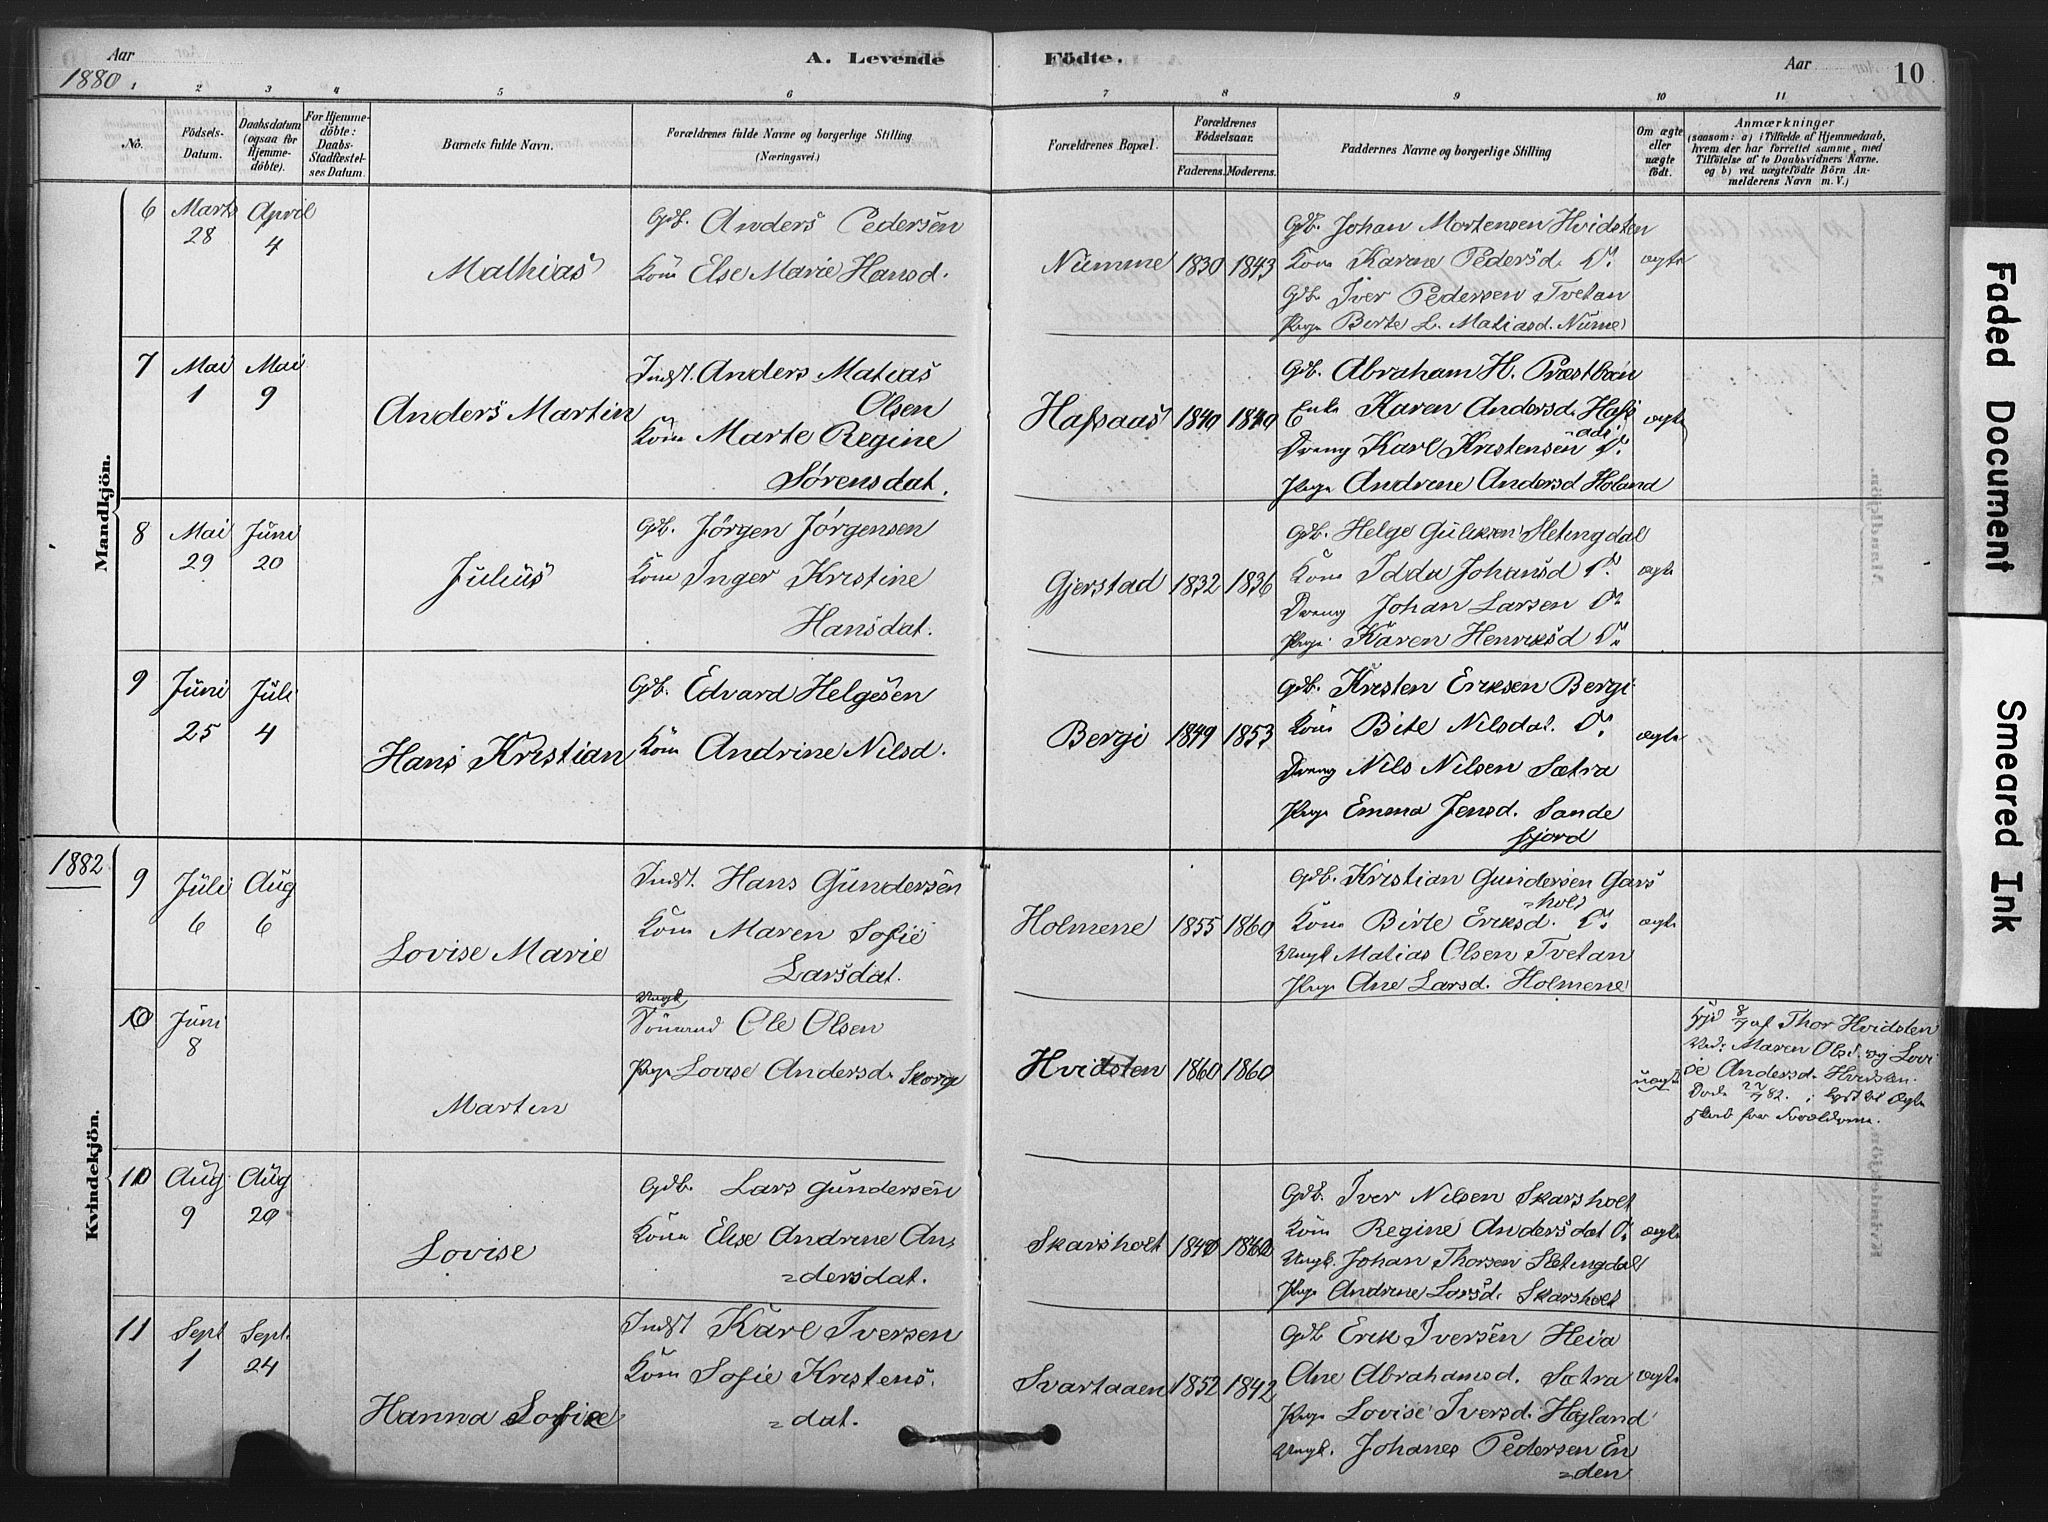 Aar
1880
A. Levende Födte.
Aar
10
1 2 3 4 5 6 7 8 9 10 11
No.
Födsels-Datum.
Daabsdatum (ogsaa for Hjemmedöbte).
For Hjemmedöbte: Daabs-Stadfæstelses Datum.
Barnets fulde Navn.
Forældrenes fulde Navne og borgerlige Stilling
(Næringsvei.)
Forældrenes Bopæl.
Forældrenes Födselsaar.
Faderens. Moderens.
Faddernes Navne og borgerlige Stilling
Om ægte eller uægte födt.
Anmærkninger
(saasom: a) i Tilfælde af Hjemmedaab,
hvem der har forrettet samme, med
Tilföielse af to Daabsvidners Navne.
og b) ved uægtefödte Börn Anmelderens Navn m. V.)
Mandkjön.
6
Marts 28
April 4
Mathias
Gdb. Anders Pedersen
Kone Else Marie Hansd.
Numme
1830
1843
Gdb. Johan Mortensen Hvidsten
Kone Karine Pedersd. Do.
Gdb. Iver Pedersen Tvetan
Pige Birte L. Matiasd. Nume
ægte
7
Mai 1
Mai 9
Anders Martin
Indst. Anders Matias
Olsen
Kone Marte Regine
Sørensdat.
Hafsaas
1840
1840
Gdb. Abraham H. Præstbøen
Enke Karen Andersd. Hafs
=aas
Dreng Karl Kristensen Do.
Pige Andrine Andersd Holand
ægte
8
Mai 29
Juni 20
Julius
Gdb. Jørgen Jørgensen
Kone Inger Kristine
Hansdat.
Gjerstad
1832
1836
Gdb. Helge Guliksen Sletingdal
Kone Idda Johansd Do.
Dreng Johan Larsen Do.
Pige Karen Henriksd Do.
ægte
9
Juni 25
Juli 4
Hans Kristian
Gdb. Edvard Helgesen
Kone Andrine Nilsd.
Bergi
1849
1853
Gdb. Kristen Eriksen Bergi
Kone Bite Nilsdat. Do.
Dreng Nils Nilsen Sætra
Pige Emma Jensd. Sande
fjord
ægte
1882
Kvindekjön.
9
Juli 6
Aug 6
Lovise Marie
Indst. Hans Gundersen
Kone Maren Sofie
Larsdat.
Holmene
1855
1860
Gdb. Kristian Gundersen Gars
=holt
Kone Birte Eriksd. Do.
Ungk Matias Olsen Tvetan
Pige Ane Larsd. Holmene
ægte
10
Juni 8
Martin
Ungk
Sömand Ole Olsen
Pige Lovise Andersd. Skorge
Hvidsten
1860
1860
uægte
Hjd 8/7 af Thor Hvidsten
Vid. Maren Olsd. og Lovi
se Andersd. Hvidsten.
skab for Forældrene.
10
Aug 9
Aug 20
Lovise
Gdb. Lars Gundersen
Kone Else Andrine An
=dersdat.
Skarsholt
1840
1860
Gdb. Iver Nilsen Skarsholt
Kone Regine Andersdat Do.
Ungk. Johan Thorsen Sletingdal
Pige Andrine Larsd. Skarsholt
ægte
11
Sept 1
Sept. 24
Hanna Sofie
Indst Karl Iversen
Kone Sofie Kristens
=dat.
Svartaaen
1852
1842
Gdb Erik Iversen Heia
Ane Abrahamsd. Sætra
Pige Lovise Iversd. Høyland
Ungk. Johanes Pedersen En
=den
ægte
Faded Document
Smeared Ink